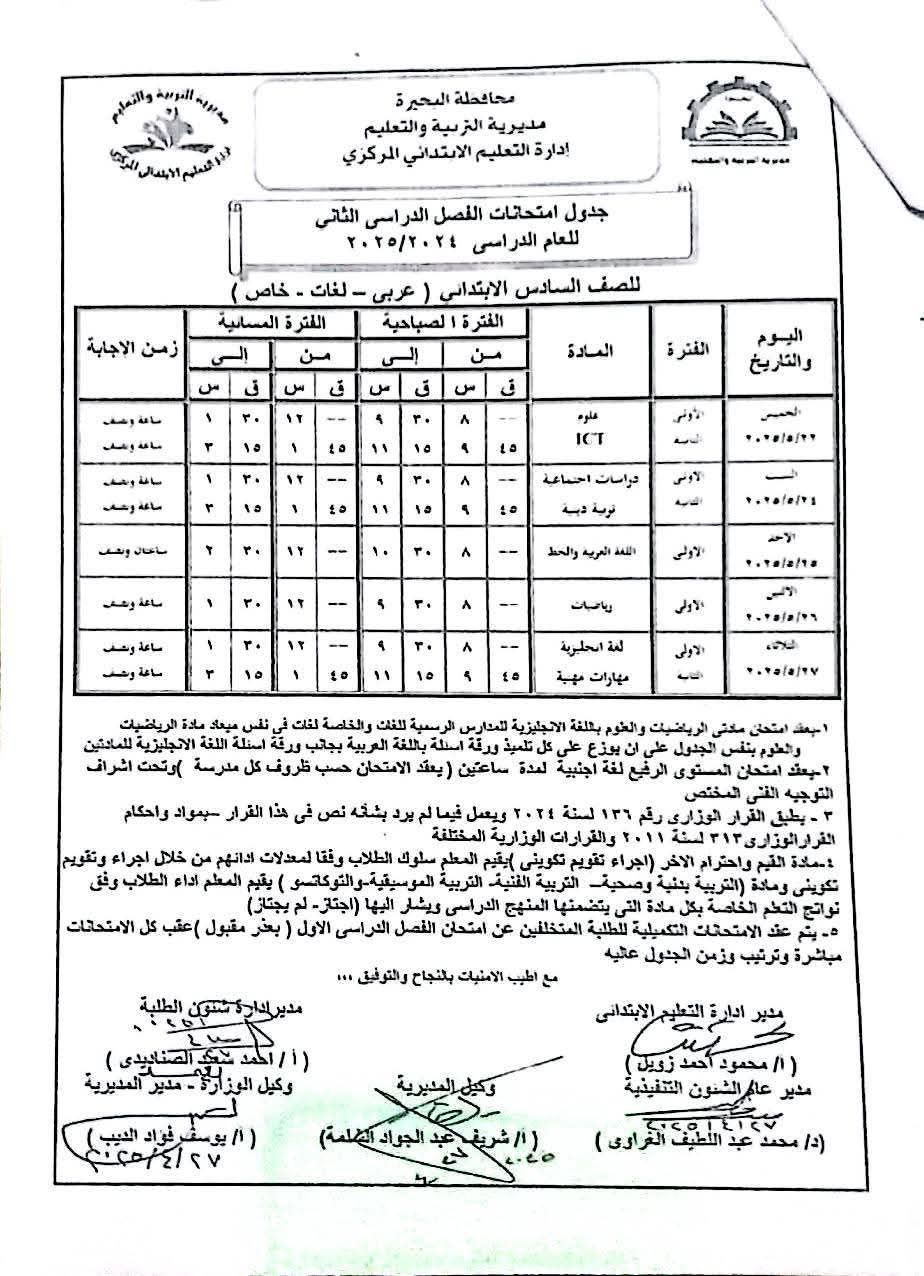 محافظة البحيرة
مديرية التربية والتعليم
إدارة التعليم الابتدائي المركزي
مديرية التربية والتعليم
إدارة التعليم الابتدائي المركزي
مديرية التربية والتعليم
جدول امتحانات الفصل الدراسى الثاني
للعام الدراسى ٢٠٢٥/٢٠٢٤
للصف السادس الابتدائي ( عربي – لغات - خاص )
اليوم والتاريخ | الفترة | المادة | الفترة الصباحية | الفترة المسائية | زمن الاجابة
من | إلى | من | إلى
ق | س | ق | س | ق | س | ق | س
الخميس ٢٠٢٥/٥/٢٢ | الأولى | علوم | -- | ٨ | ٣٠ | ٩ | -- | ١٢ | ٣٠ | ١ | ساعة ونصف
الثانية | ICT | ٤٥ | ٩ | ١٥ | ١١ | ٤٥ | ١ | ١٥ | ٣ | ساعة ونصف
السبت ٢٠٢٥/٥/٢٤ | الاولى | دراسات اجتماعية | -- | ٨ | ٣٠ | ٩ | -- | ١٢ | ٣٠ | ١ | ساعة ونصف
الثانية | تربية دينية | ٤٥ | ٩ | ١٥ | ١١ | ٤٥ | ١ | ١٥ | ٣ | ساعة ونصف
الاحد ٢٠٢٥/٥/٢٥ | الاولى | اللغة العربية والخط | -- | ٨ | ٣٠ | ١٠ | -- | ١٢ | ٣٠ | ٢ | ساعتان ونصف
الاثنين ٢٠٢٥/٥/٢٦ | الاولى | رياضيات | -- | ٨ | ٣٠ | ٩ | -- | ١٢ | ٣٠ | ١ | ساعة ونصف
الثلاثاء ٢٠٢٥/٥/٢٧ | الاولى | لغة انجليزية | -- | ٨ | ٣٠ | ٩ | -- | ١٢ | ٣٠ | ١ | ساعة ونصف
الثانية | مهارات مهنية | ٤٥ | ٩ | ١٥ | ١١ | ٤٥ | ١ | ١٥ | ٣ | ساعة ونصف
١-يعقد امتحان مادتى الرياضيات والعلوم باللغة الانجليزية للمدارس الرسمية للغات والخاصة لغات فى نفس ميعاد مادة الرياضيات
والعلوم بنفس الجدول على ان يوزع على كل تلميذ ورقة اسئلة باللغة العربية بجانب ورقة اسئلة اللغة الانجليزية للمادتين
٢-يعقد امتحان المستوى الرفيع لغة اجنبية لمدة ساعتين ( يعقد الامتحان حسب ظروف كل مدرسة )وتحت اشراف
التوجيه الفنى المختص
٣ - يطبق القرار الوزارى رقم ١٣٦ لسنة ٢٠٢٤ ويعمل فيما لم يرد بشأنه نص فى هذا القرار –بمواد واحكام
القرارالوزارى٣١٣ لسنة ٢٠١١ والقرارات الوزارية المختلفة
٤-مادة القيم واحترام الاخر (اجراء تقويم تكوينى )يقيم المعلم سلوك الطلاب وفقا لمعدلات ادائهم من خلال اجراء وتقويم
تكوينى ومادة (التربية بدنية وصحية– التربية الفنية- التربية الموسيقية-والتوكاتسو ) يقيم المعلم اداء الطلاب وفق
نواتج التعلم الخاصة بكل مادة التى يتضمنها المنهج الدراسى ويشار اليها (اجتاز- لم يجتاز)
٥- يتم عقد الامتحانات التكميلية للطلبة المتخلفين عن امتحان الفصل الدراسى الاول ( بعذر مقبول )عقب كل الامتحانات
مباشرة وترتيب وزمن الجدول عاليه
مع اطيب الامنيات بالنجاح والتوفيق ،،،
مدير ادارة التعليم الابتدائى
مدير ادارة شئون الطلبة
( ا/ محمود احمد زويل )
( أ / احمد سعيد الصناديدى )
مدير عام الشئون التنفيذية
وكيل المديرية
وكيل الوزارة - مدير المديرية
٢٠٢٥/٤/٢٧
(د/ محمد عبد اللطيف الغراوى )
( أ/ شريف عبد الجواد السلامة )
( أ/ يوسف فؤاد الديب )
٢٠٢٥/٤/٢٧